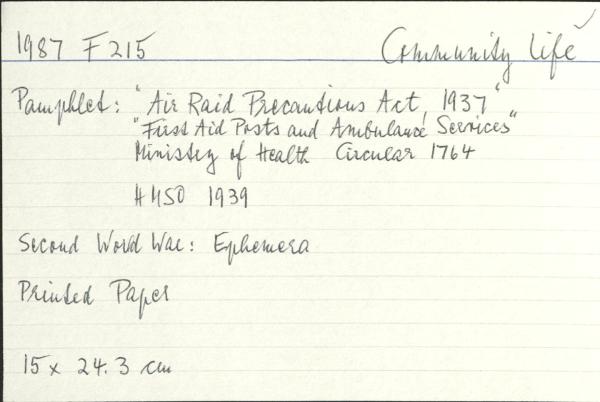 1987 F215 Community Life
Pamphlet: "Air Raid Precautions Act, 1937"
"First Aid Posts and Ambulance Services"
Ministry of Health Circular 1764
HMSO 1939
Second World War: Ephemera
Printed Paper
15 x 24.3 cm